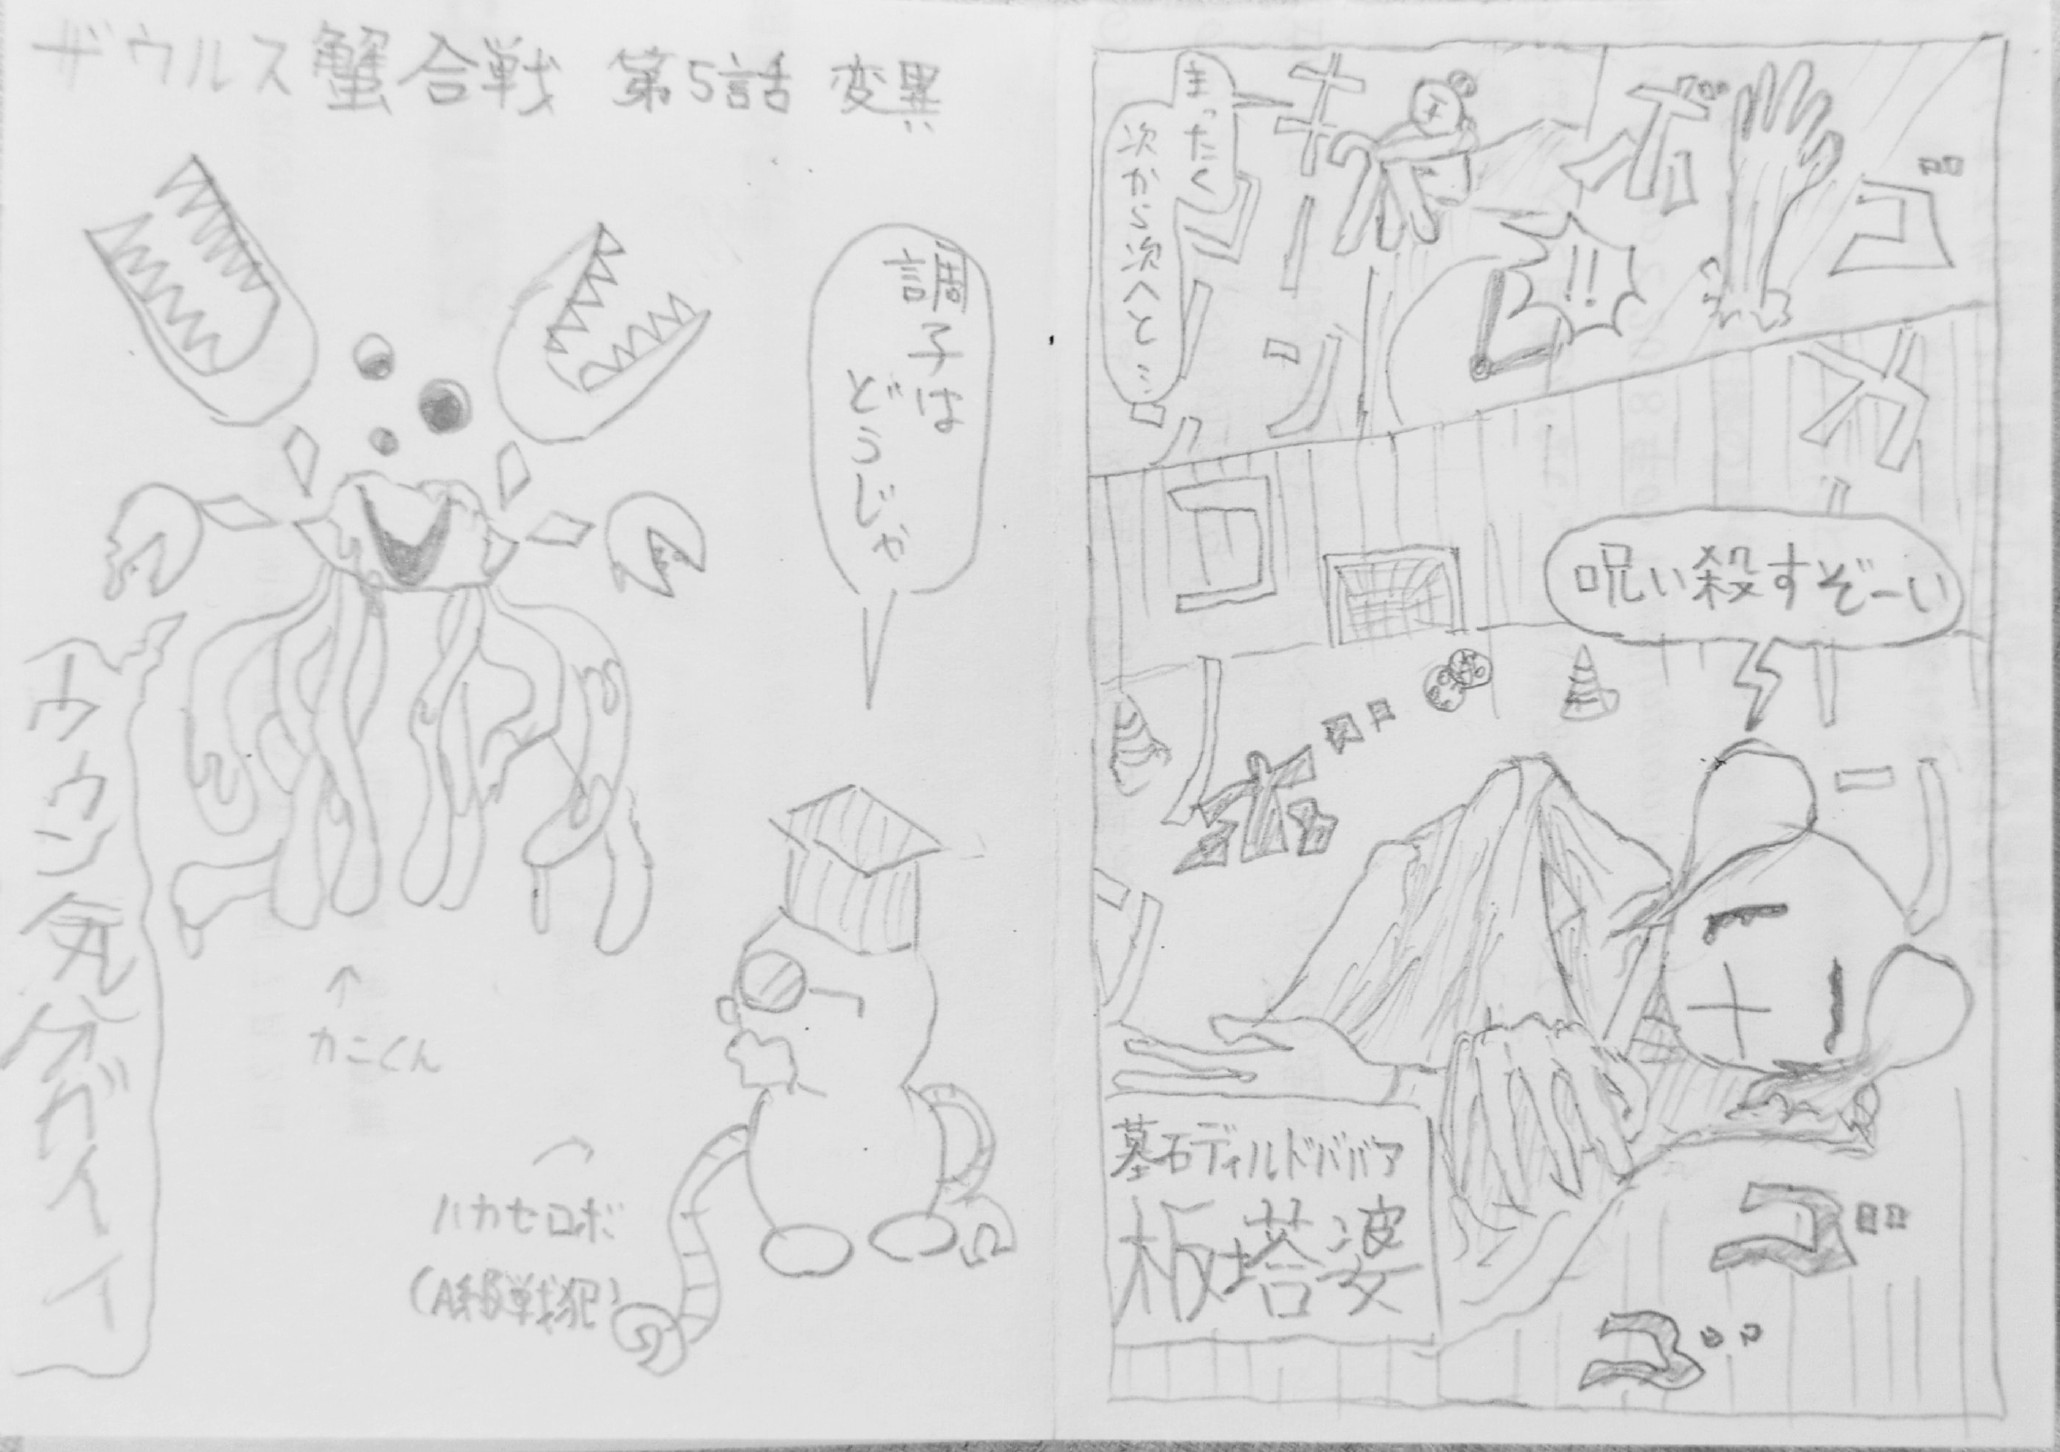 ザウルス蟹合戦 第5話 変異
調子は
どうじゃ
カニくん
ハカセロボ
(A級戦犯)
まったく
次から次へと…
!!
ボ
ゴ
呪い殺すぞーい
墓石ディルドババア
板塔婆
ゴ
ゴ